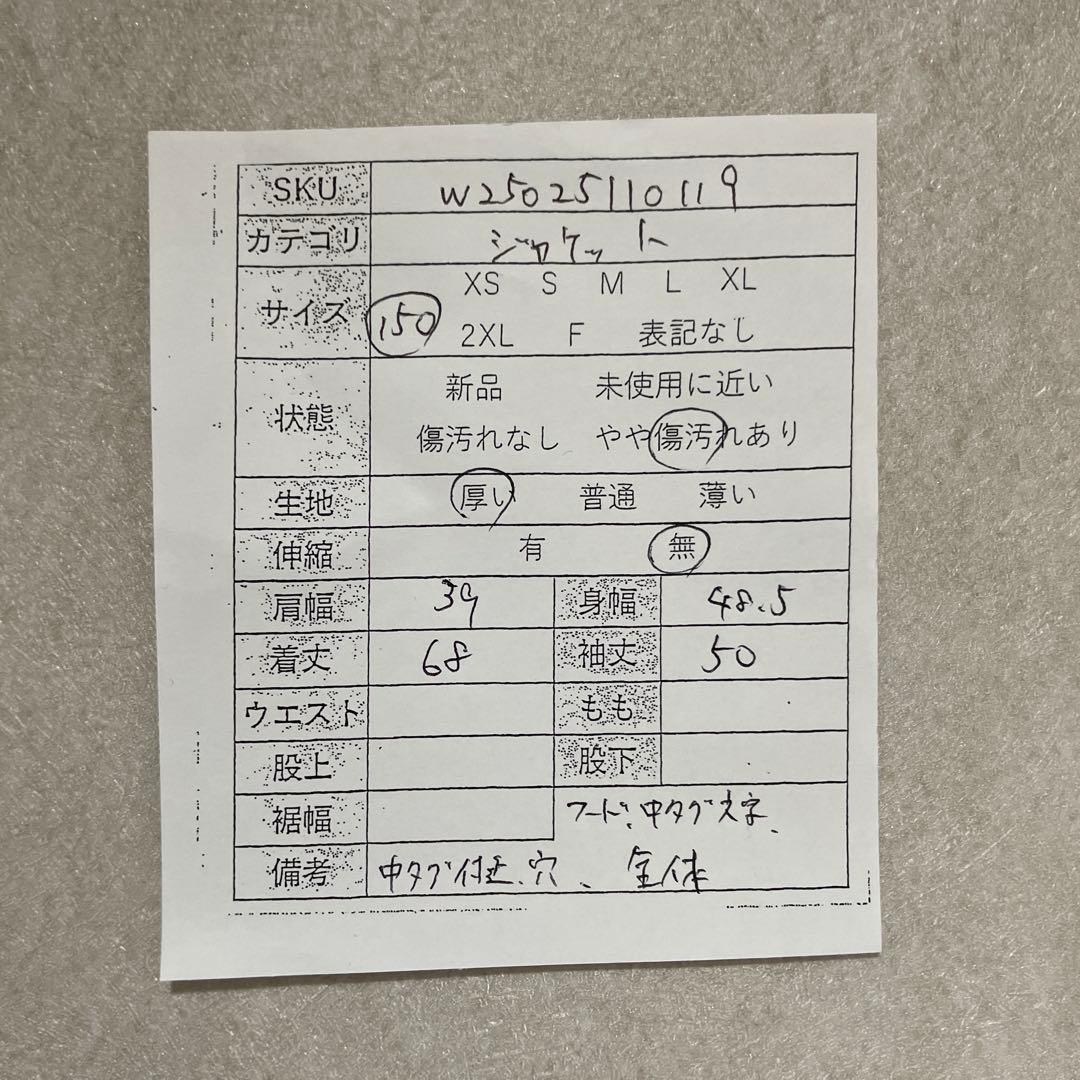 SKU W25025110119
カテゴリ ジャケット
サイズ 150 XS S M L XL
2XL F 表記なし
状態 新品 未使用に近い
傷汚れなし やや傷汚れあり
生地 厚い 普通 薄い
伸縮 有 無
肩幅 39 身幅 48.5
着丈 68 袖丈 50
ウエスト もも
股上 股下
裾幅 フード、中タグ文字、
備考 中タグ付近、穴、全体